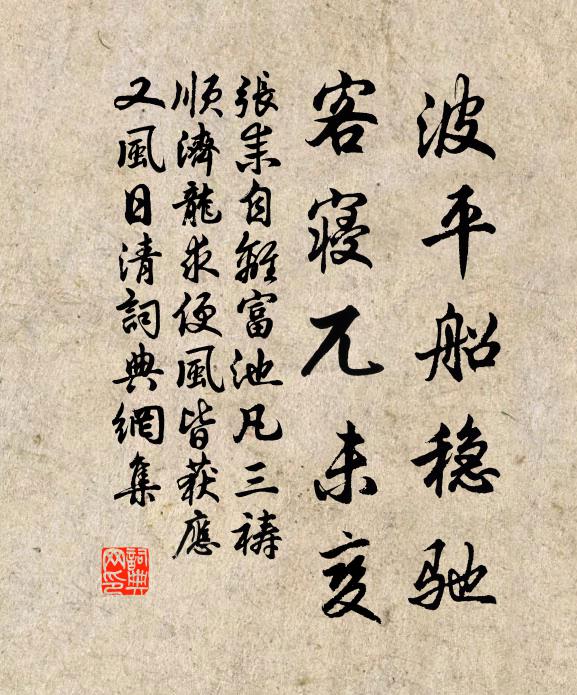 波平船稳驰
客寝兀未变
張耒自離富池凡三祷
順濟龍求便風皆获應
又風日清詞典網集
詞典网印